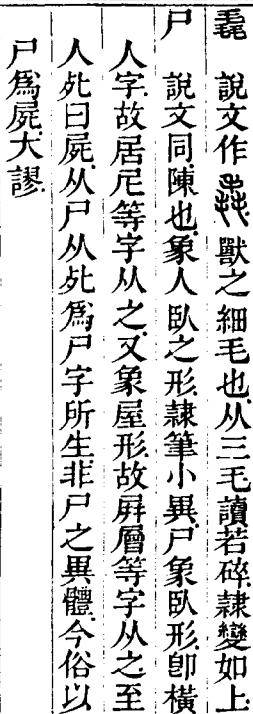 毳　說文作𣯍獸之細毛也从三毛讀若碎隸變如上
尸　說文同陳也象人臥之形隸筆小異尸象臥形卽橫
人字故居凥等字从之又象屋形故屛層等字从之至
人𣦸曰屍从尸从𣦸爲尸字所生非尸之異體今俗以
尸爲屍大謬